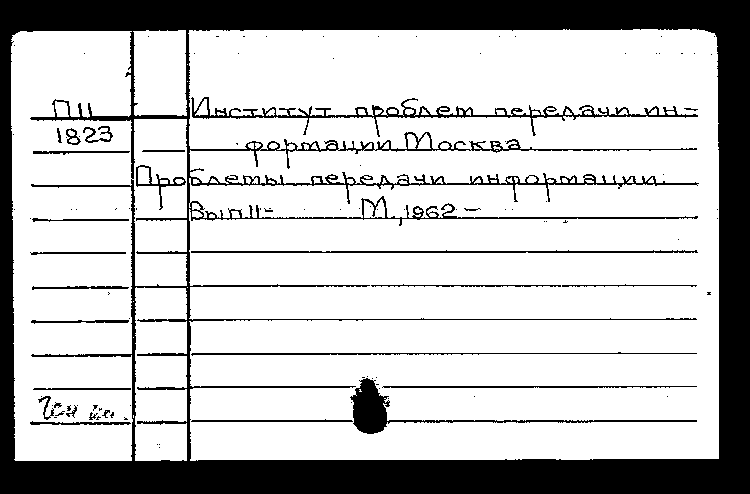 П11
1823
Институт проблем передачи ин-
формации. Москва.
Проблемы передачи информации.
Вып.11- М., 1962 -